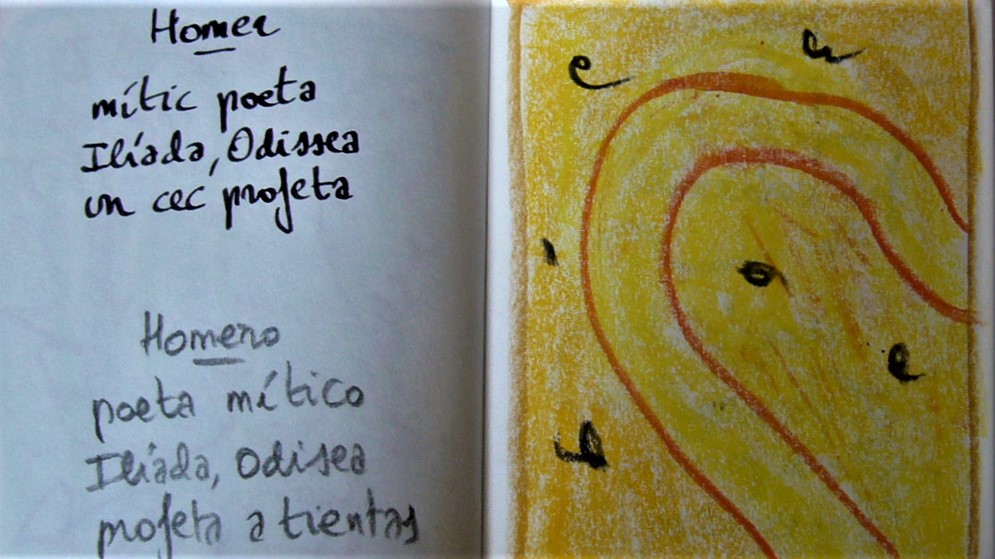 Homer
mític poeta
Ilíada, Odissea
un cec profeta
Homero
poeta mítico
Ilíada, Odisea
profeta a tientas